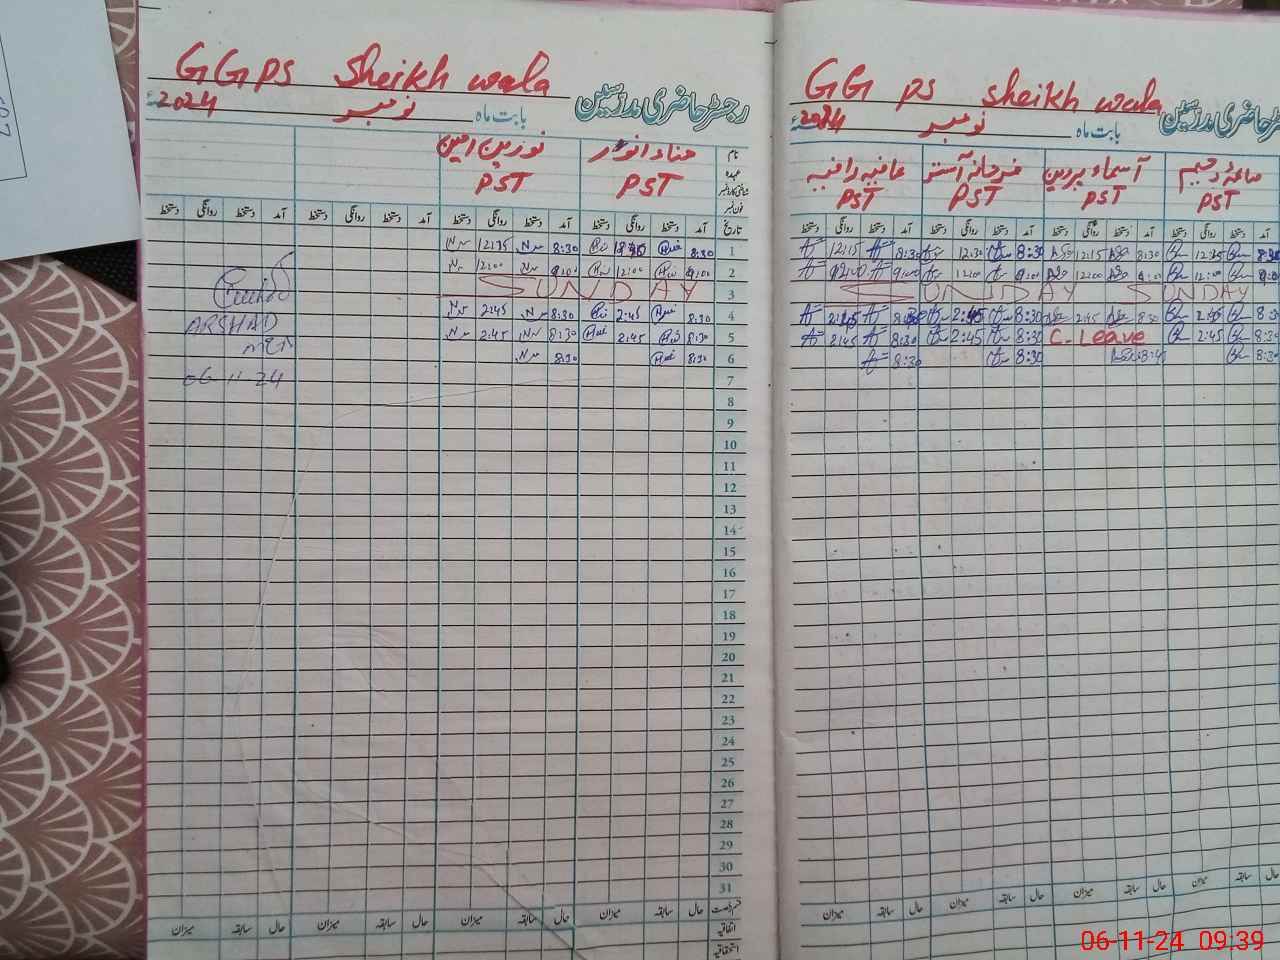 GGPS Sheikh wala
رجسٹر حاضری مدرسین
بابت ماہ نومبر 2024ء
نام
حناء انور
نورین امین
عہدہ
PST
PST
تاریخ
آمد دستخط روانگی دستخط آمد دستخط روانگی دستخط آمد دستخط روانگی دستخط آمد دستخط روانگی دستخط
1 8:30 8:30 12:15
2 9:00 12:00 9:00 12:00
3 SUNDAY
4 8:30 2:45 8:30 2:45
5 8:30 2:45 8:30 2:45
6 8:30 8:30
7
8
9
10
11
12
13
14
15
16
17
18
19
20
21
22
23
24
25
26
27
28
29
30
31
ARSHAD
06-11-24
حال سابقہ میزان حال سابقہ میزان حال سابقہ میزان حال سابقہ میزان
اتفاقیہ
استحقاقیہ
GGPS Sheikh wala
رجسٹر حاضری مدرسین
بابت ماہ نومبر 2024ء
آسماء پروین
PST
PST
PST
PST
آمد دستخط روانگی دستخط آمد دستخط روانگی دستخط آمد دستخط روانگی دستخط آمد دستخط روانگی دستخط
8:30 12:15 8:30 12:15 8:30 12:30 8:30 12:15
9:00 12:00 9:00 12:00 9:00 12:00 9:00 12:00
SUNDAY SUNDAY
8:30 2:45 8:30 2:45 8:30 2:45 2:45
8:30 2:45 C. Leave 8:30 2:45 8:30 2:45
8:30 8:30 8:30
حال سابقہ میزان حال سابقہ میزان حال سابقہ میزان حال سابقہ میزان
06-11-24 09:39